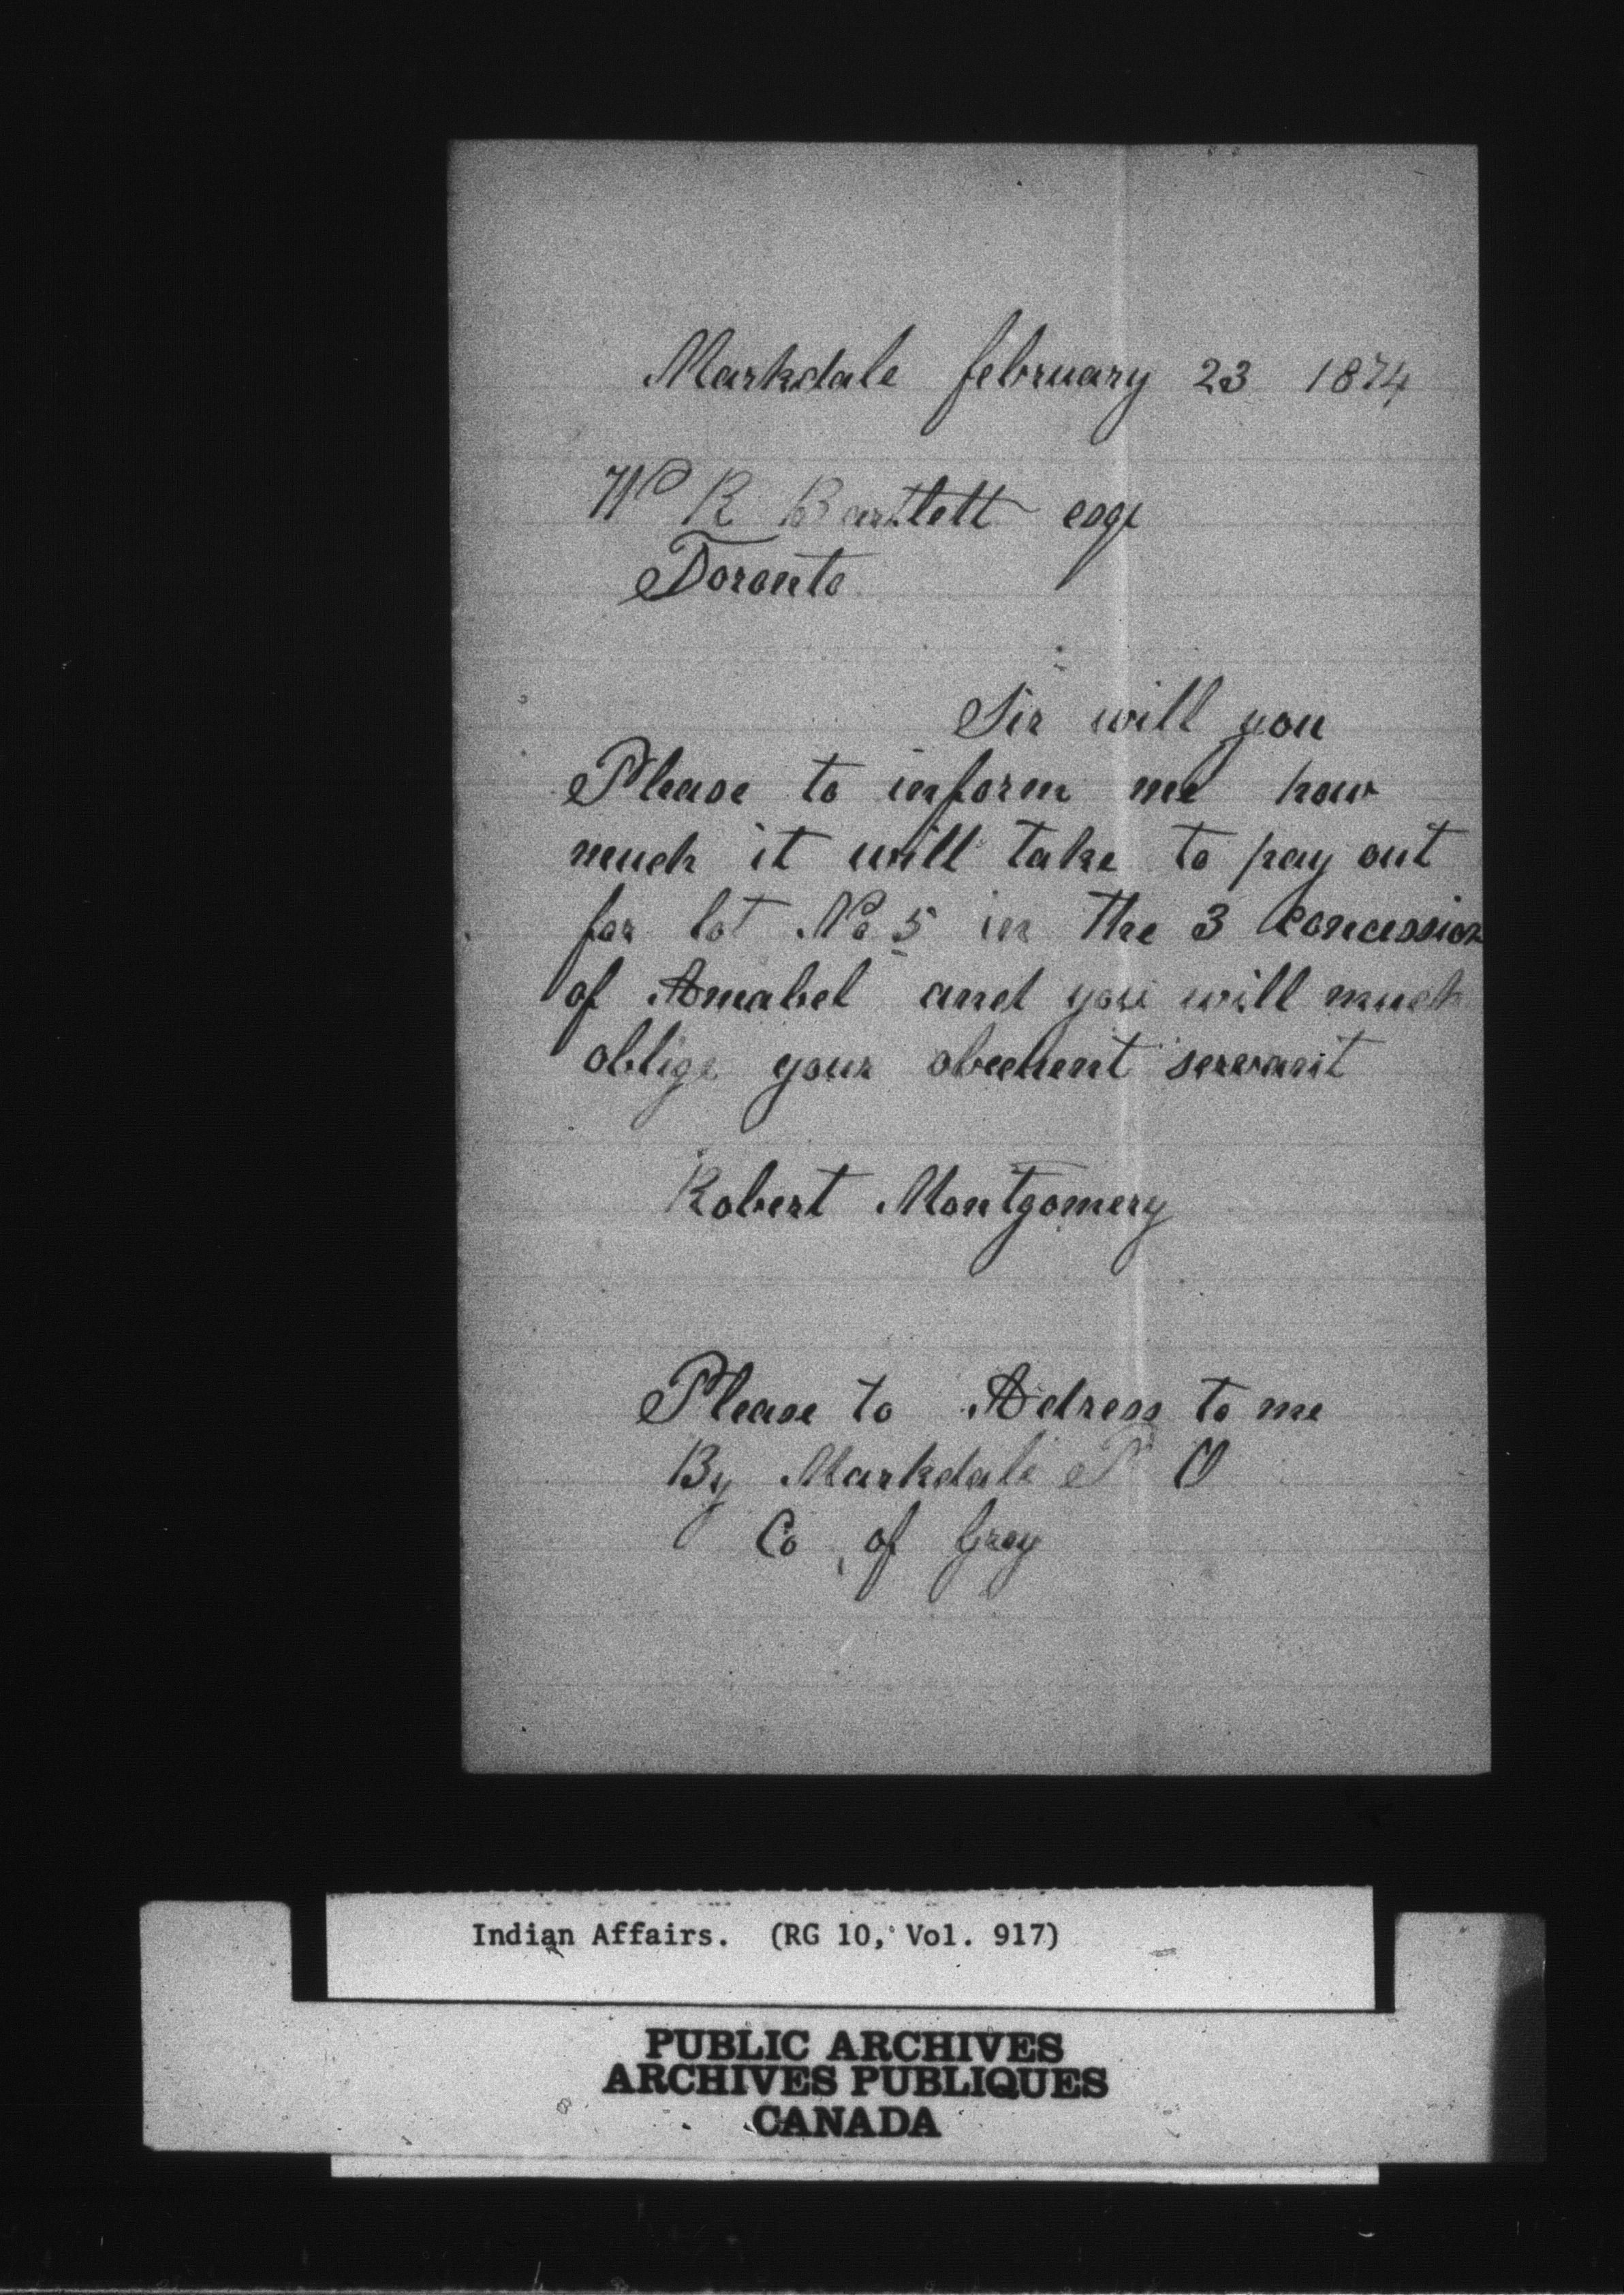 Markdale february 23 1874
W R Bartlett esqr
Toronto
Sir will you
Please to inform me how
much it will take to pay out
for lot No 5 in the 3 concession
of Amabel and you will much
oblige your obedient servant
Robert Montgomery
Please to Adress to me
By Markdale P O
Co of Grey
Indian Affairs. (RG 10, Vol. 917)
PUBLIC ARCHIVES
ARCHIVES PUBLIQUES
CANADA